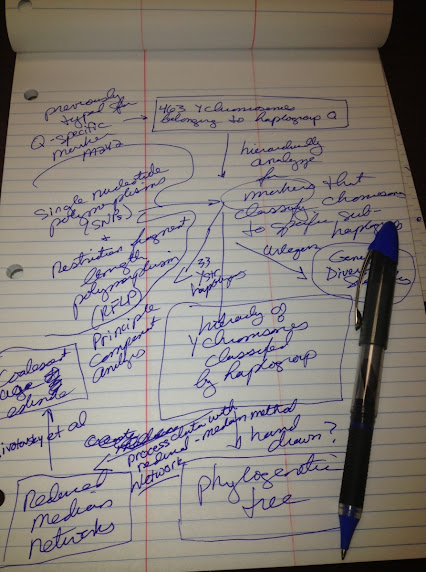 previously
typed for
Q-specific
marker
M242
463 Y chromosomes
belonging to haplogroup Q
hierarchically
analyze
for
markers that
classify chromosomes
to specific sub-
haplogroups
Single nucleotide
polymorphisms
(SNPs)
+
Restriction fragment
length
polymorphism
(RFLP)
33
Y-STR
haplotypes
Arlequin
Gene
Dive
Principle
component
analysis
hierarchy of
Y chromosomes
classified
by haplogroup
Coalescent
age
estimate
ivotovsky et al
process data with
reduced-median method
Network
hand
drawn?
Reduced
Median
Networks
phylogenetic
tree